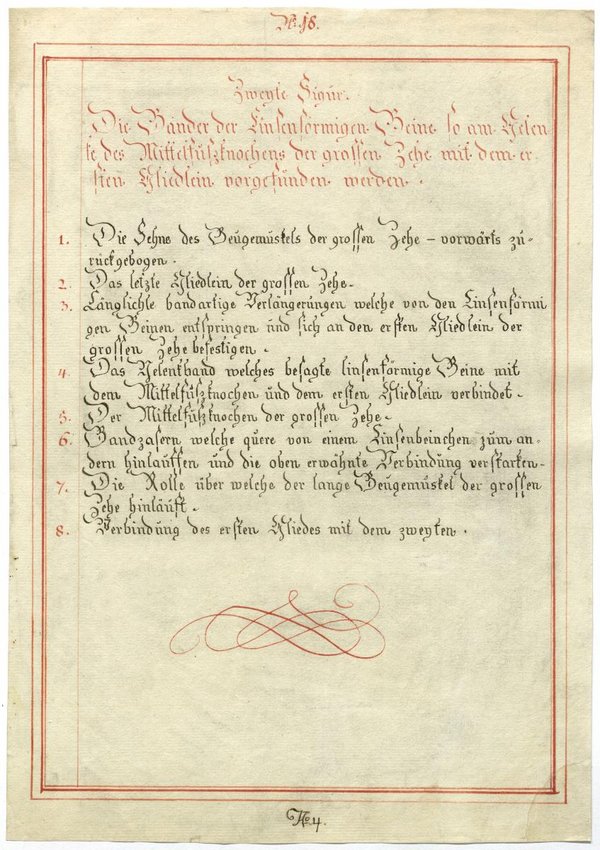 N. 18.
Zweyte Figur.
Die Bänder der Linsenförmigen Beine so am Gelen
ke des Mittelfuszknochens der grossen Zehe mit dem er-
sten Gliedlein vorgefunden werden.
1. Die Sehne des Beugemuskels der grossen Zehe - vorwärts zu-
rückgebogen.
2. Das letzte Gliedlein der grossen Zehe.
3. Länglichte bandartige Verlängerungen welche von den Linsenförmi
gen Beinen entspringen und sich an den ersten Gliedlein der
grossen Zehe befestigen.
4. Das Gelenkband welches besagte linsenförmige Beine mit
dem Mittelfuszknochen und dem ersten Gliedlein verbindet.
5. Der Mittelfuszknochen der grossen Zehe.
6. Bandzasern welche quere von einem Linsenbeinchen zum an-
dern hinlauffen und die oben erwähnte Verbindung verstarken.
7. Die Rolle über welche der lange Beugemuskel der grossen
Zehe hinläuft.
8. Verbindung des ersten Gliedes mit dem zweyten.
No. 4.